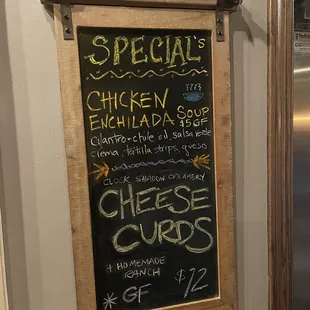 SPECIAL's
CHICKEN
ENCHILADA SOUP
$5 GF
Cilantro-chile oil, salsa verde
crema, tortilla strips, queso
CLOCK SHADOW CREAMERY
CHEESE
CURDS
+ HOMEMADE
RANCH $12
* GF